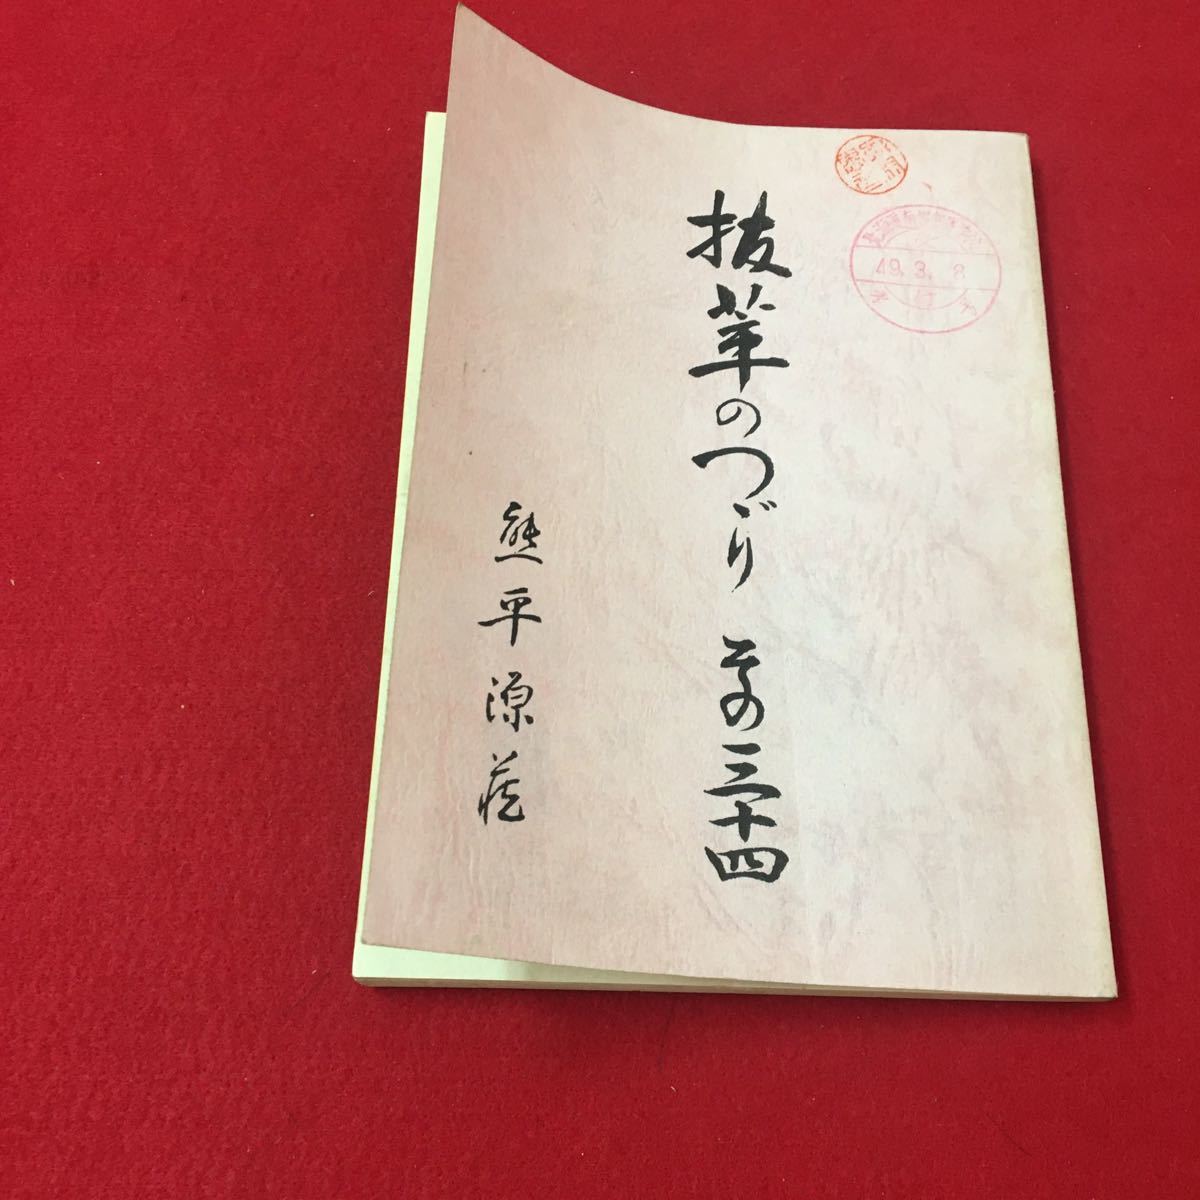 抜萃のつゞり その三十四
熊平源蔵
49.3.8